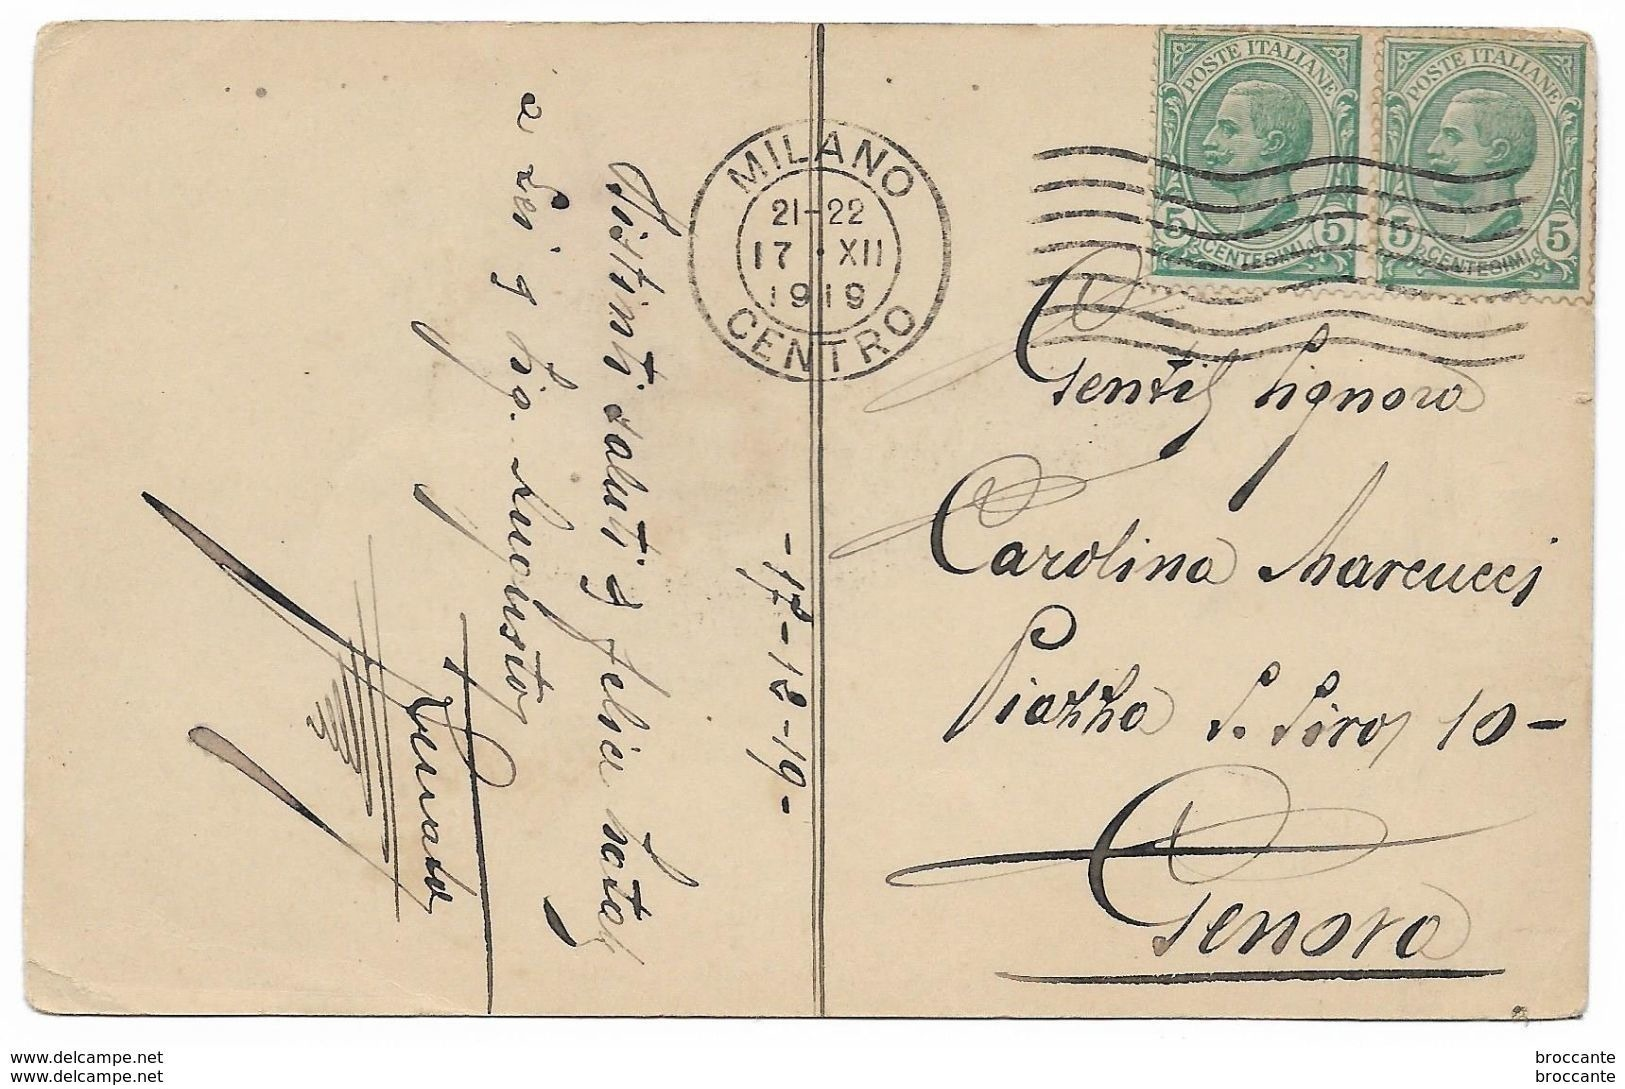 POSTE ITALIANE
5 CENTESIMI 5
POSTE ITALIANE
5 CENTESIMI 5
MILANO
21-22
17 · XII
1919
CENTRO
Gentil Signora
Carolina Marcucci
Piazza S. Siro, 10-
Genova
-17-12-19-
Distinti saluti e felice
a Lei e Sig.
www.delcampe.net
www.delcampe.net
broccante
broccante